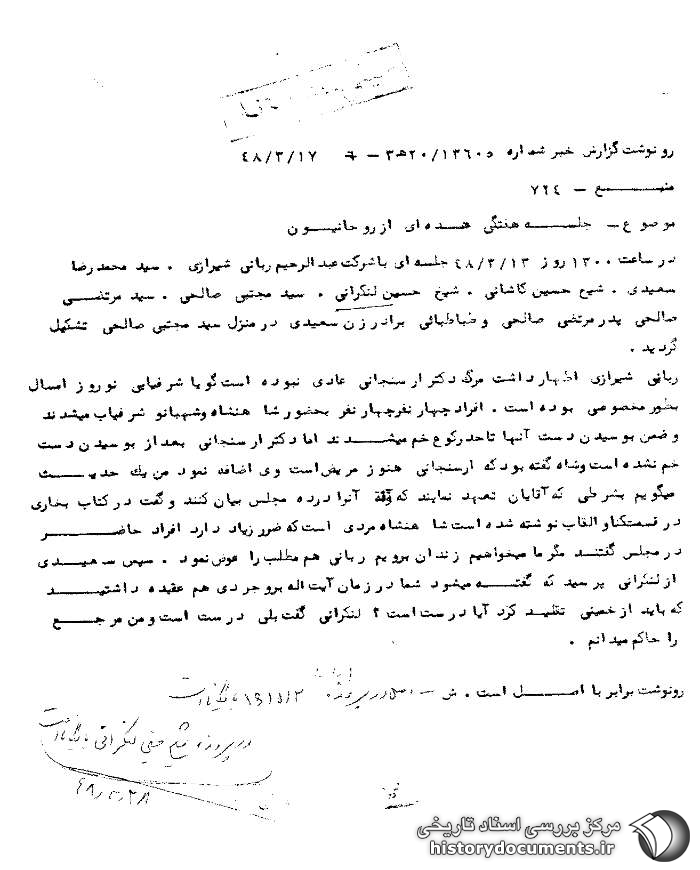 رونوشت گزارش خبر شماره ۲۰/۱۳۶۰۵ه۳ - ۴۸/۳/۱۷
منبع - ۷۲۴
موضوع - جلسه هفتگی عده‌ای از روحانیون
در ساعت ۱۳۰۰ روز ۴۸/۳/۱۳ جلسه ای با شرکت عبدالرحیم ربانی شیرازی . سید محمدرضا
سعیدی . شیخ حسین کاشانی . شیخ حسین لنکرانی . سید مجتبی صالحی . سید مرتضی
صالحی پدر مرتضی صالحی و طباطبائی برادر زن سعیدی در منزل سید مجتبی صالحی تشکیل
گردید .
ربانی شیرازی اظهار داشت مرگ دکتر ارسنجانی عادی نبوده است گویا شرفیابی نوروز امسال
بطور مخصوصی بوده است . افراد چهار نفر چهار نفر بحضور شاهنشاه و شهبانو شرفیاب میشدند
و ضمن بوسیدن دست آنها تا حد رکوع خم میشدند اما دکتر ارسنجانی بعد از بوسیدن دست
خم نشده است و شاه گفته بود که ارسنجانی هنوز مریض است وی اضافه نمود من یک حدیث
میگویم بشرطی که آقایان تعهد نمایند که آنرا در ده مجلس بیان کنند و گفت در کتاب بخاری
در قسمت کنا و القاب نوشته شده است شاهنشاه مردی است که ضرر زیاد دارد افراد حاضر
در مجلس گفتند مگر ما میخواهیم زندان برویم ربانی هم مطلب را عوض نمود . سپس سعیدی
از لنکرانی پرسید که گفته میشود شما در زمان آیت اله بروجردی هم عقیده داشتید
که باید از خمینی تقلید کرد آیا درست است ؟ لنکرانی گفت بلی درست است و من مرجع
را حاکم میدانم .
رونوشت برابر با اصل است . ش - اصل در پرونده ۱۹۱۵۱۲ بایگانی است
در پرونده شیخ حسین لنکرانی بایگانی است
۴۸/۳/۲۸
مرکز بررسی اسناد تاریخی
historydocuments.ir